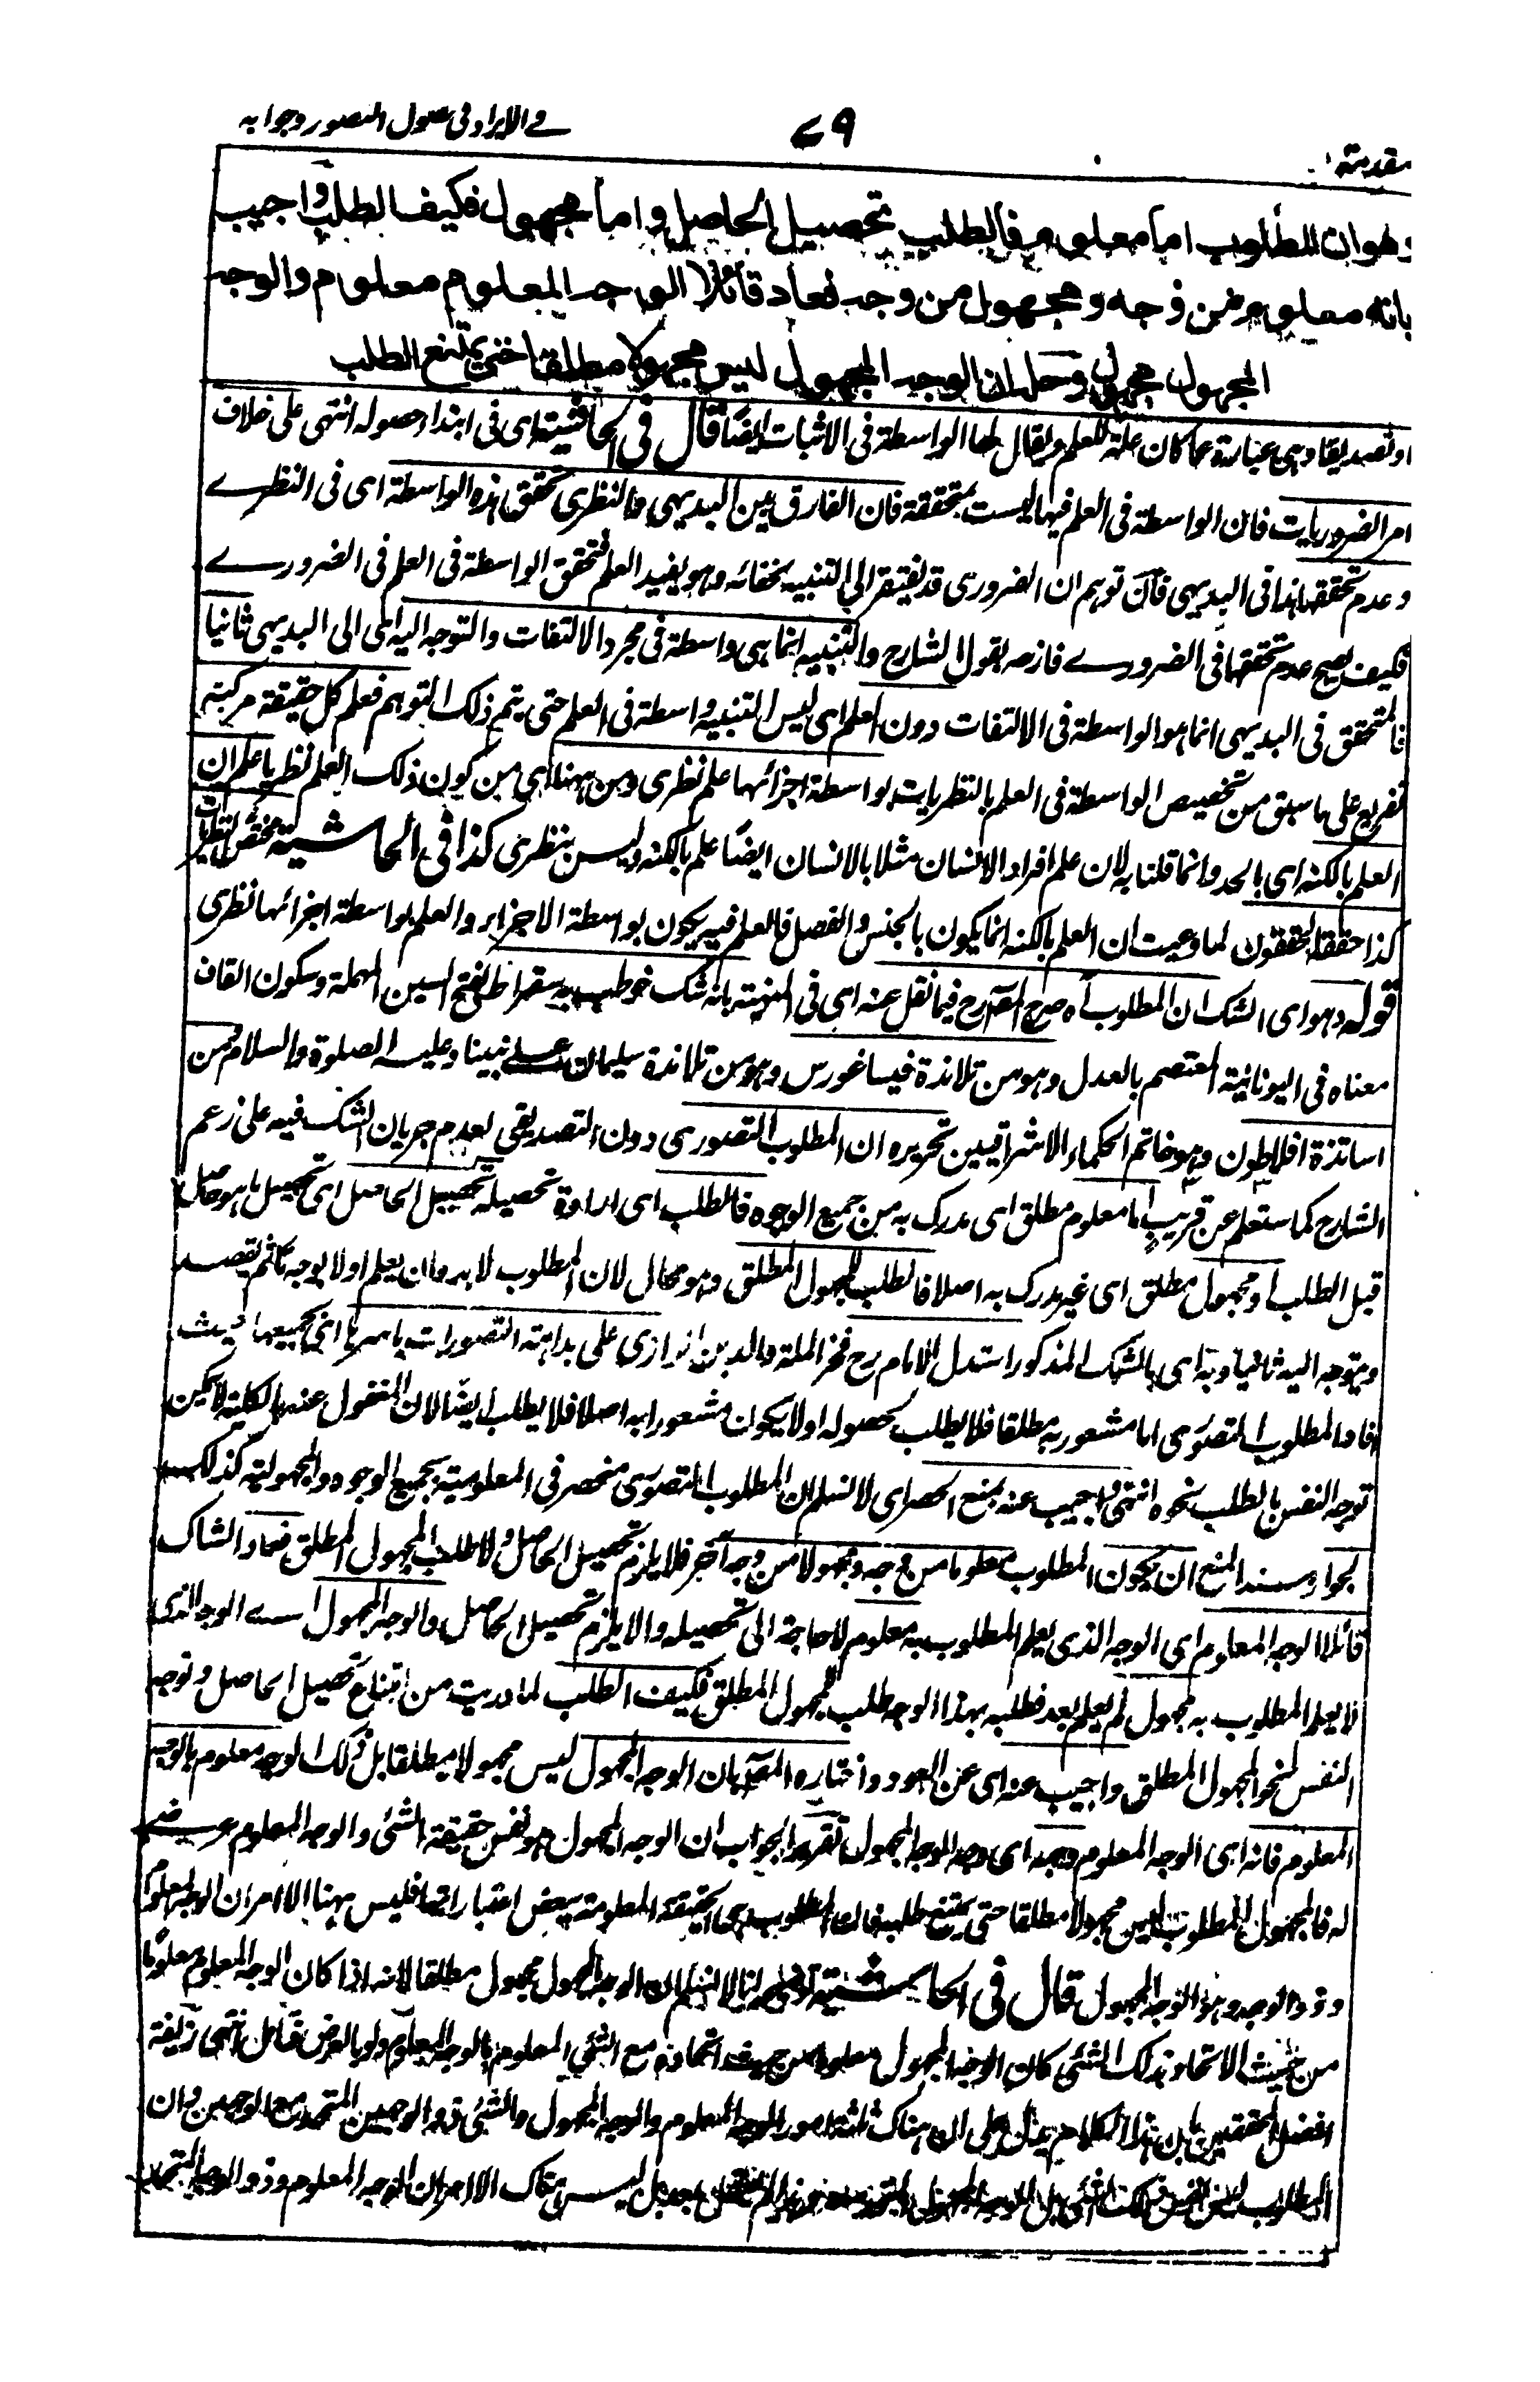 مقدمة
٧٩
في الايراد في حصول التصور وجوابه
وهو ان المطلوب اما معلوم فالطلب تحصيل الحاصل واما مجهول فكيف الطلب واجيب
بانه معلوم من وجه ومجهول من وجه فعاد قائلا الوجه المعلوم معلوم والوجه
المجهول مجهول وحله ان الوجه المجهول ليس مجهولا مطلقا حتى يمتنع الطلب
او تصديقا وهي عبارة عما كان علة للعلم ويقال لها الواسطة في الاثبات ايضا قال في الحاشية اي في ابتداء حصوله انتهى على خلاف
امر الضروريات فان الواسطة في العلم فيها ليست بمتحققة فان الفارق بين البديهي والنظري تحقق هذه الواسطة اي في النظرے
وعدم تحققها اي في البديهي فان توهم ان الضروري قد يفتقر الى التنبيه لخفائه وهو يفيد العلم فتحقق الواسطة في العلم في الضرورے
فكيف يصح عدم تحققها في الضرورے فازحه بقول الشارح والتنبيه انما هي واسطة في مجرد الالتفات والتوجه اليه اي الى البديهي ثانيا
فالمتحقق في البديهي انما هو الواسطة في الالتفات دون العلم اي ليس التنبيه واسطة في العلم حتى يتم ذلك التوهم فعلم كل حقيقة مركبة
تفريع على ما سبق من تخصيص الواسطة في العلم بالنظريات بواسطة اجزائها علم نظري ومن ههنا اي من كون ذلك العلم نظريا علم ان
العلم بالكنه اي بالحد وانما قلنا به لان علم افراد الانسان مثلا بالانسان ايضا علم بالكنه وليس بنظري كذا في الحاشية مختص بالنظريات
كذا حققه المحققون لما وعيت ان العلم بالكنه انما يكون بالجنس والفصل فالعلم فيه يكون بواسطة الاجزاء والعلم بواسطة اجزائها نظري
قوله وهو اي الشك ان المطلوب آه صرح المصرح فيما نقل عنه اي في المنهية بانه شك خوطب به سقراط بفتح السين المهملة وسكون القاف
معناه في اليونانية المعتصم بالعدل وهو من تلامذة فيساغورس وهو من تلامذة سليمان على نبينا وعليه الصلوة والسلام ومن
اساتذة افلاطون وهو خاتم الحكماء الاشراقيين تحريره ان المطلوب التصوري دون التصديقي لعدم جريان الشك فيه على زعم
الشارح كما ستعلم عن قريب اما معلوم مطلق اي مدرك به من جميع الوجوه فالطلب اي ارادة تحصيله تحصيل الحاصل اي تحصيل ما هو حاصل
قبل الطلب او مجهول مطلق اي غير مدرك به اصلا فالطلب للمجهول المطلق وهو محال لان المطلوب لا بد وان يعلم اولا بوجه ما ثم يقصد
ويتوجه اليه ثانيا وبه اي بالشك المذكور استدل الامام رح فخر الملة والدين الرازي على بداهة التصورات باسرها اي بجميعها حيث
افاد المطلوب التصوري اما مشعور به مطلقا فلا يطلب لحصوله او لا يكون مشعورا به اصلا فلا يطلب ايضا لان المغفول عنه بالكلية لا يمكن
توجه النفس بالطلب نحوه انتهى واجيب عنه بمنع الحصر اي لا نسلم ان المطلوب التصوري منحصر في المعلومية بجميع الوجوه والمجهولية كذلك
لجواز وسند المنع ان يكون المطلوب معلوما من وجه ومجهولا من وجه آخر فلا يلزم تحصيل الحاصل ولا طلب المجهول المطلق فعاد الشاك
قائلا الوجه المعلوم اي الوجه الذي يعلم المطلوب به معلوم لا حاجة الى تحصيله والا يلزم تحصيل الحاصل والوجه المجهول اے الوجه الذي
لا يعلم المطلوب به مجهول لم يعلم بعد فطلبه بهذا الوجه طلب المجهول المطلق فكيف الطلب لما دريت من امتناع تحصيل الحاصل وتوجه
النفس لنحو المجهول المطلق واجيب عنه اي عن العود واختاره المصر بان الوجه المجهول ليس مجهولا مطلقا بل ذلك الوجه معلوم بالوجه
المعلوم فانه اي الوجه المعلوم وجه اي وجه الوجه المجهول تقرير الجواب ان الوجه المجهول هو نفس حقيقة الشئ والوجه المعلوم عرضي
له فالمجهول المطلوب ليس مجهولا مطلقا حتى يمتنع طلبه فان المطلوب هي الحقيقة المعلومة ببعض اعتباراتها فليس ههنا الا امران الوجه المعلوم
وذو الوجه وهو الوجه المجهول قال في الحاشية لا نسلم ان الوجه المجهول مجهول مطلقا لانه اذا كان الوجه المعلوم معلوما
من حيث الاتحاد بذلك الشئ كان الوجه المجهول معلوما من حيث اتحاده مع الشئ المعلوم بالوجه المعلوم ولو بالعرض تامل انتهى زيفه
افضل المحققين بان هذا الكلام يدل على ان هناك ثلثة امور الوجه المعلوم والوجه المجهول والشئ ذو الوجهين المتحد مع الوجهين وان
المطلوب ليس نفس ذلك الشئ بل الوجه المجهول بل ليس هناك الا امران الوجه المعلوم وذو الوجه المتحد